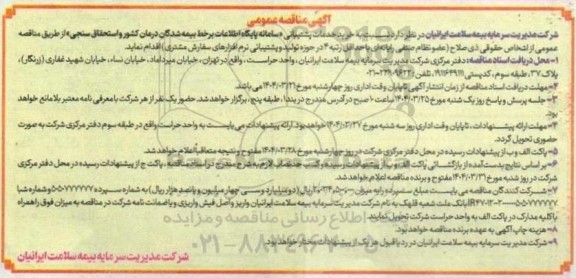 آگهی مناقصه عمومی
شرکت مدیریت سرمایه بیمه سلامت ایرانیان در نظر دارد نسبت به خرید خدمات پشتیبانی «سامانه پایگاه اطلاعات برخط بیمه شدگان درمان کشور و استحقاق سنجی» از طریق مناقصه
عمومی از اشخاص حقوقی ذی صلاح (عضو نظام صنفی رایانه ای با حداقل رتبه ۴ در حوزه تولید و پشتیبانی نرم افزارهای سفارش مشتری) اقدام نماید.
۱- محل دریافت اسناد مناقصه: دفتر مرکزی شرکت مدیریت سرمایه بیمه سلامت ایرانیان، واحد حراست، واقع در تهران، خیابان میرداماد، خیابان نساء، خیابان شهید غفاری (زرنگار)،
پلاک ۳۷، طبقه سوم، کدپستی ۱۹۱۱۶۴۹۱۱۱، تلفن:
۲- مهلت دریافت اسناد مناقصه از زمان انتشار آگهی تا پایان وقت اداری روز چهارشنبه مورخ ۱۴۰۴/۰۳/۲۱ می باشد.
۳- جلسه پرسش و پاسخ روز یک شنبه مورخ ۱۴۰۴/۰۳/۲۵ ساعت ۱۰ صبح در آدرس مندرج در بند ۱، طبقه پنج، برگزار خواهد شد. حضور یک نفر از هر شرکت با معرفی نامه معتبر بلامانع خواهد
بود.
۴- مهلت ارائه پیشنهادات، تا پایان وقت اداری روز سه شنبه مورخ ۱۴۰۴/۰۳/۲۷ خواهد بود. ارائه پیشنهادات می بایست به واحد حراست واقع در طبقه سوم دفتر مرکزی شرکت به صورت
حضوری تحویل گردد.
۵- پاکت الف و ب از پیشنهادات رسیده در محل دفتر مرکزی شرکت در روز چهارشنبه مورخ ۱۴۰۴/۰۳/۲۸ مفتوح و نتیجه متعاقباً اعلام خواهد شد.
۶- بر اساس نتایج بدست آمده از بازگشائی پاکت الف و ب از پیشنهادات رسیده و کسب حد نصاب لازم به شرح مندرج در اسناد مناقصه، پاکت ج از پیشنهادات رسیده در محل دفتر مرکزی
شرکت در روز شنبه مورخ ۱۴۰۴/۰۳/۳۱ مفتوح و برنده مناقصه اعلام خواهد شد.
۷- شرکت کنندگان مناقصه می بایست مبلغ سپرده را به میزان ریال (دو میلیارد و سی چهار میلیون و پانصد هزار ریال) به شماره سپرده و شماره شبا
بانک ملت شعبه قلهک به نام شرکت مدیریت سرمایه بیمه سلامت ایرانیان واریز و اصل فیش واریزی و یا ضمانت نامه شرکت در مناقصه به میزان فوق را همراه
با کلیه مدارک در پاکت الف به واحد حراست شرکت تحویل نمایند.
۸- هزینه چاپ آگهی به عهده برنده مناقصه خواهد بود.
۹- شرکت مدیریت سرمایه بیمه سلامت ایرانیان در رد یا قبول هر یک از پیشنهادات مختار خواهد بود.
شرکت مدیریت سرمایه بیمه سلامت ایرانیان
اطلاع رسانی مناقصه و مزایده
۰۲۱-۸۸۳۴۹۶۷۰-۵